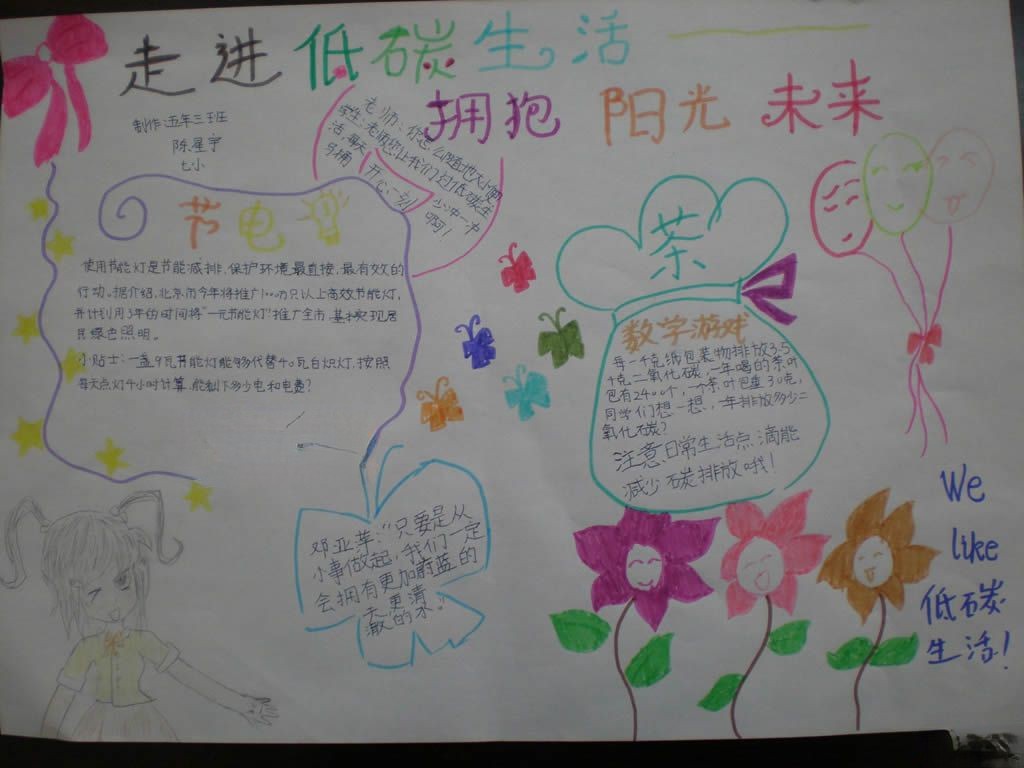 走进低碳生活
拥抱 阳光 未来
制作:五年三班
陈星宇
七小
老师:你怎么随地大小便
学生:老师您让我们过低碳生
活每天 少冲一次
马桶 啊!
开心一刻
节电
使用节能灯是节能减排,保护环境最直接、最有效的
行动。据介绍,北京市今年将推广100万只以上高效节能灯,
并计划用3年的时间将“一元节能灯”推广全市,基本实现居
民绿色照明。
小贴士:一盏9瓦节能灯能够代替40瓦白炽灯,按照
每天点灯4小时计算,能剩下多少电和电费?
茶
数字游戏
每一千克纸包装物排放3.5
千克二氧化碳,一年喝的茶叶
包有2400个,一个茶叶包重30克,
同学们想一想,一年排放多少二
氧化碳?
注意日常生活点滴能
减少碳排放哦!
邓亚萍:“只要是从
小事做起,我们一定
会拥有更加蔚蓝的
天,更清
澈的水。
We
like
低碳
生活!